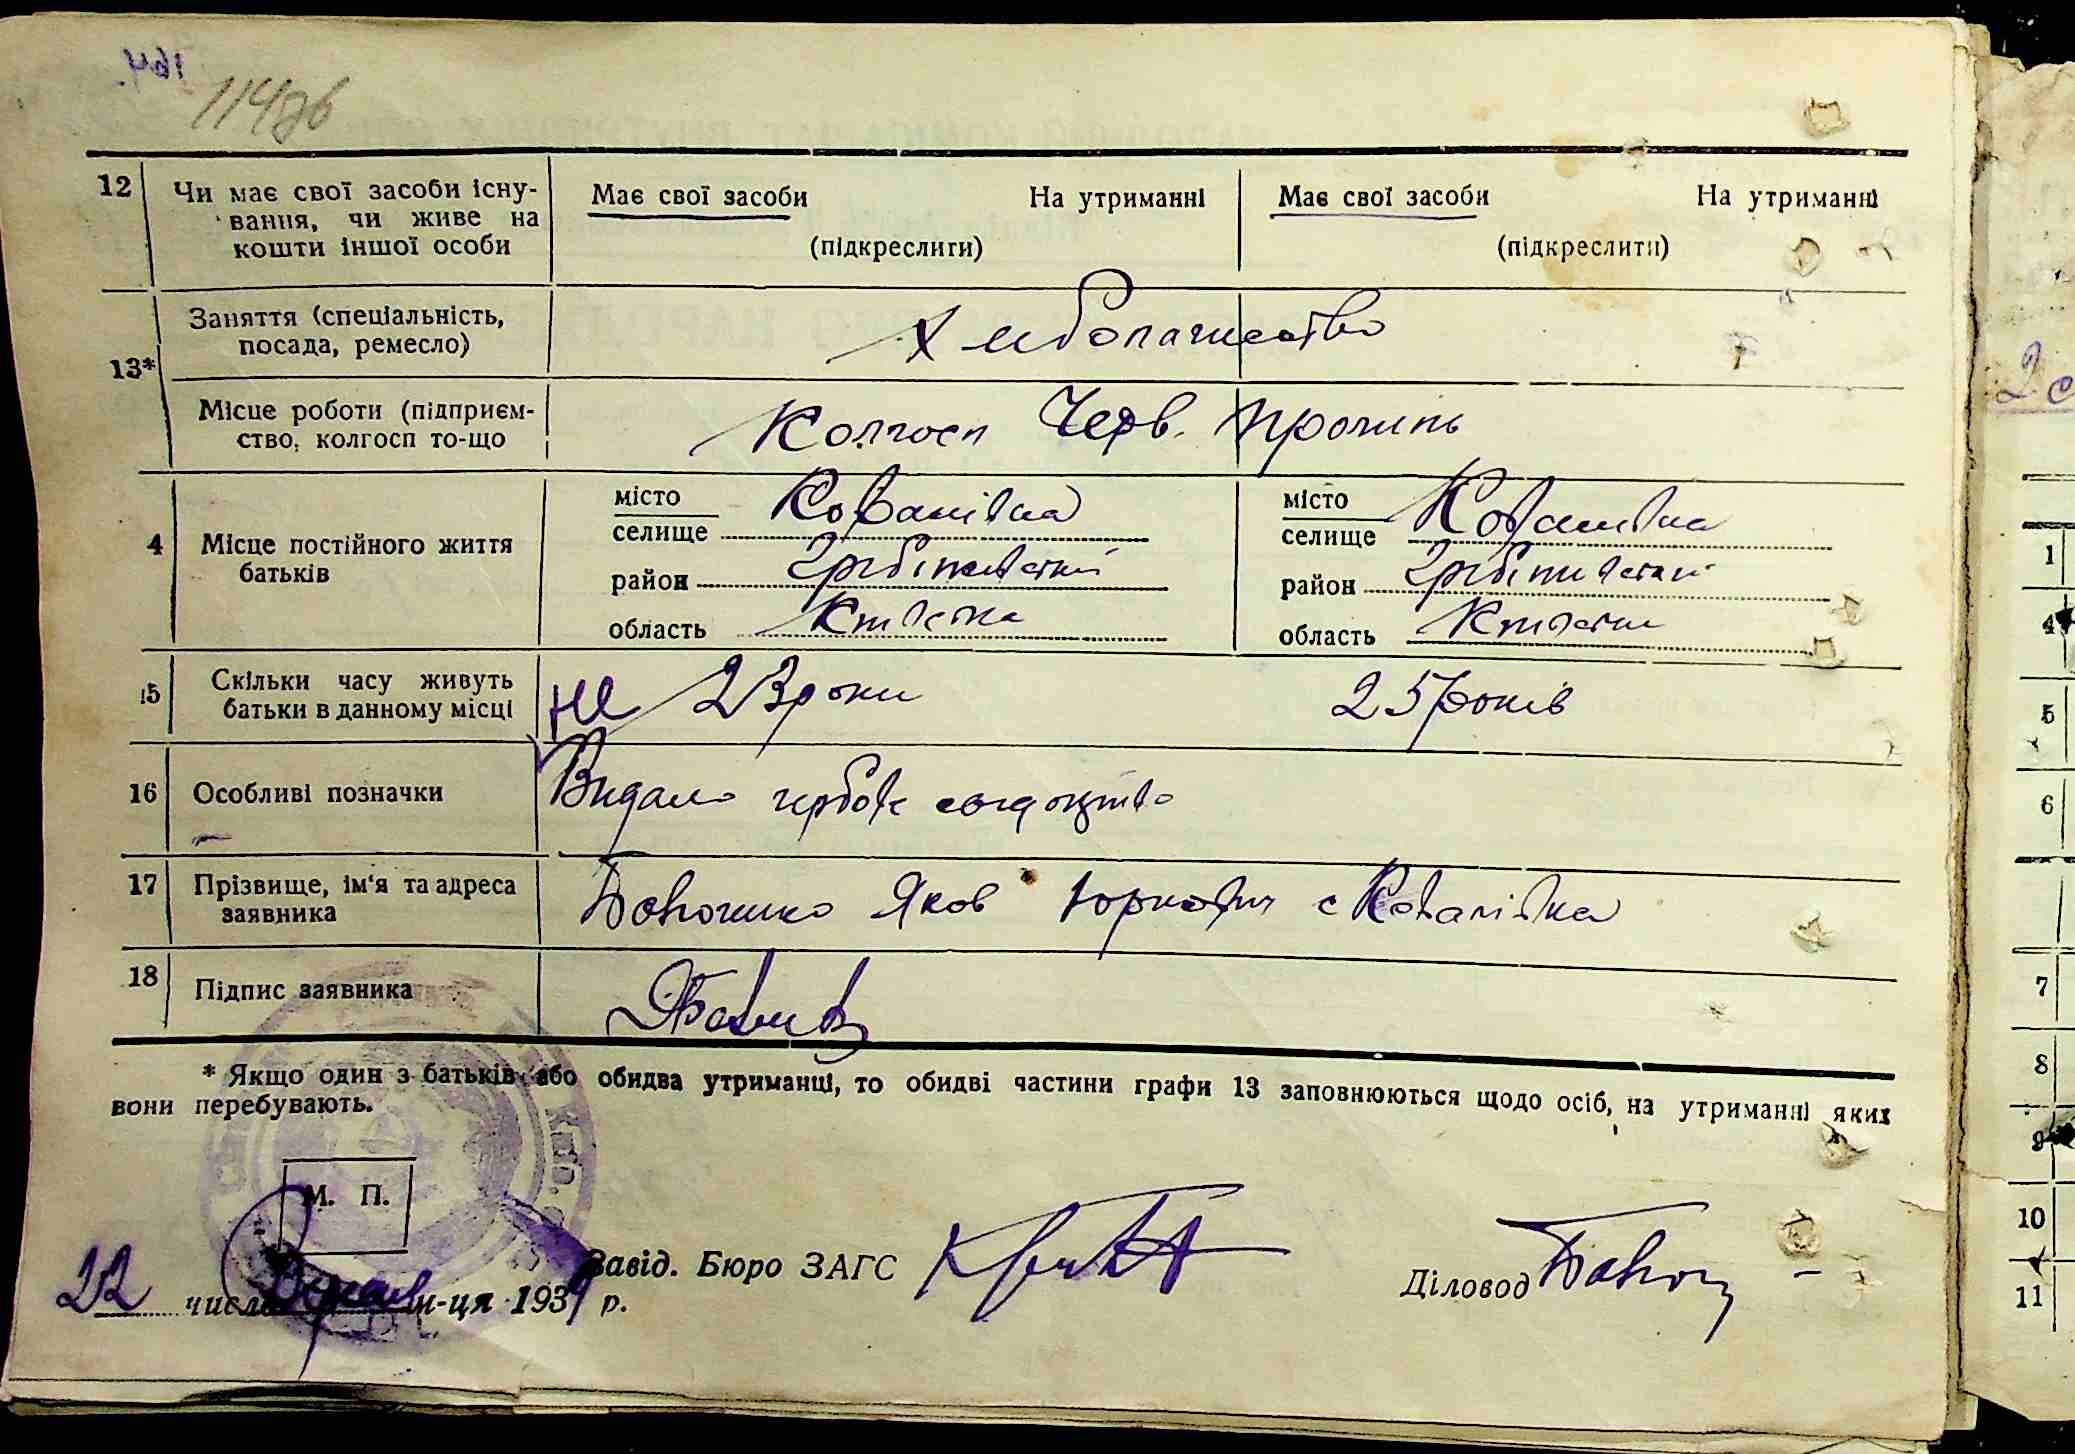 164.
114зв
12 Чи має свої засоби існу-
вання, чи живе на
кошти іншої особи
Має свої засоби На утриманні
(підкреслити)
Має свої засоби На утриманні
(підкреслити)
13* Заняття (спеціальність,
посада, ремесло)
Хліборобство
Місце роботи (підприєм-
ство, колгосп то-що
Колгосп Черв. Промінь
4 Місце постійного життя
батьків
місто
селище Ковалівка
район Гребінківський
область Київська
місто
селище Ковалівка
район Гребінківський
область Київська
15 Скільки часу живуть
батьки в данному місці
не 23 роки
25 років
16 Особливі позначки
Видано свідоцтво
17 Прізвище, ім'я та адреса
заявника
Яков Юркович с Ковалівка
18 Підпис заявника
* Якщо один з батьків або обидва утриманці, то обидві частини графи 13 заповнюються щодо осіб, на утриманні яких
вони перебувають.
М. П.
22 числа м-ця 1939 р.
Завід. Бюро ЗАГС
Діловод
1
4
5
6
7
8
9
10
11